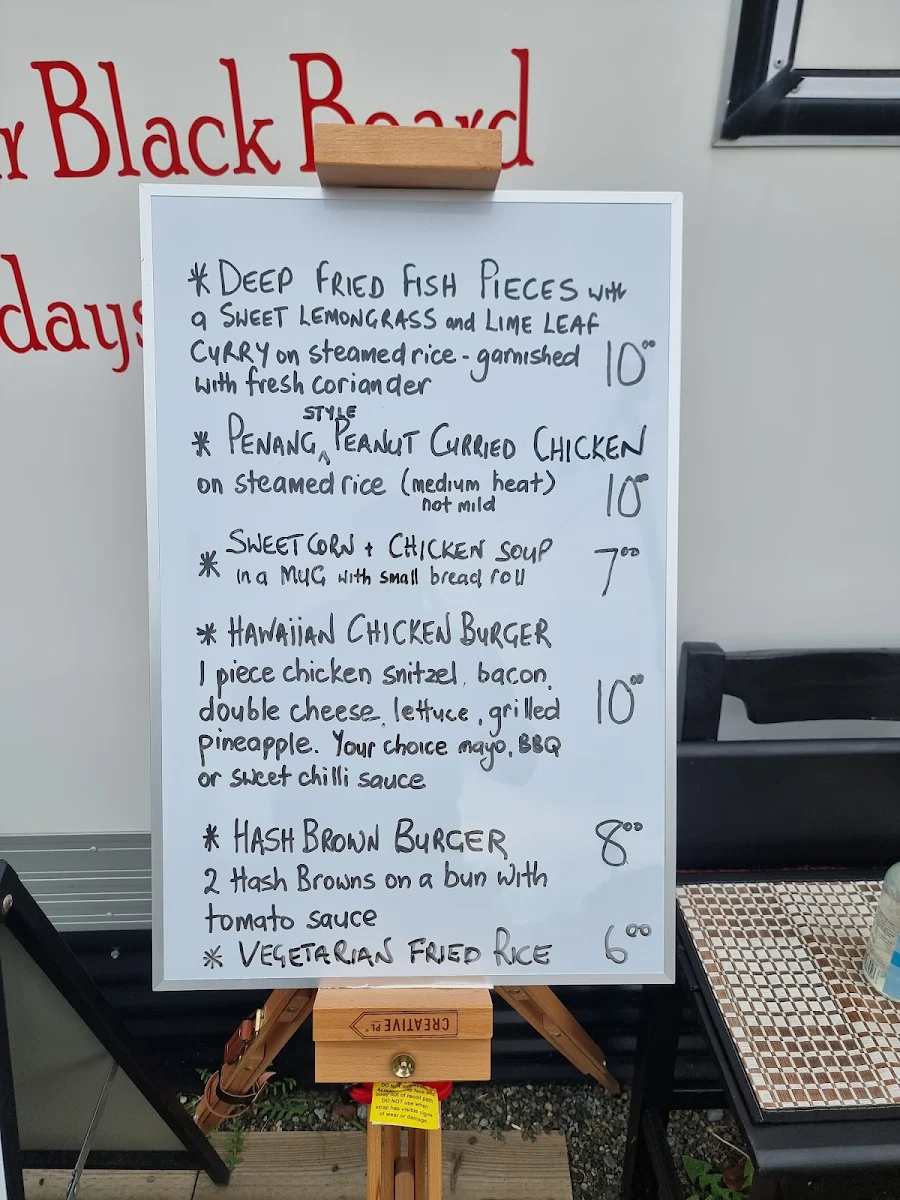 r Black Board
days
* DEEP FRIED FISH PIECES with
a SWEET LEMONGRASS and LIME LEAF
CURRY on steamed rice - garnished 10⁰⁰
with fresh coriander
STYLE
* PENANG ^ PEANUT CURRIED CHICKEN
on steamed rice (medium heat) 10⁰⁰
not mild
SWEETCORN + CHICKEN SOUP 7⁰⁰
* in a MUG with small bread roll
* HAWAIIAN CHICKEN BURGER
1 piece chicken snitzel, bacon, 10⁰⁰
double cheese, lettuce, grilled
pineapple. Your choice mayo, BBQ
or sweet chilli sauce
* HASH BROWN BURGER 8⁰⁰
2 Hash Browns on a bun with
tomato sauce
* VEGETARIAN FRIED RICE 6⁰⁰
CREATIVE PL®
DO NOT use when
strap has visible signs
of wear or damage